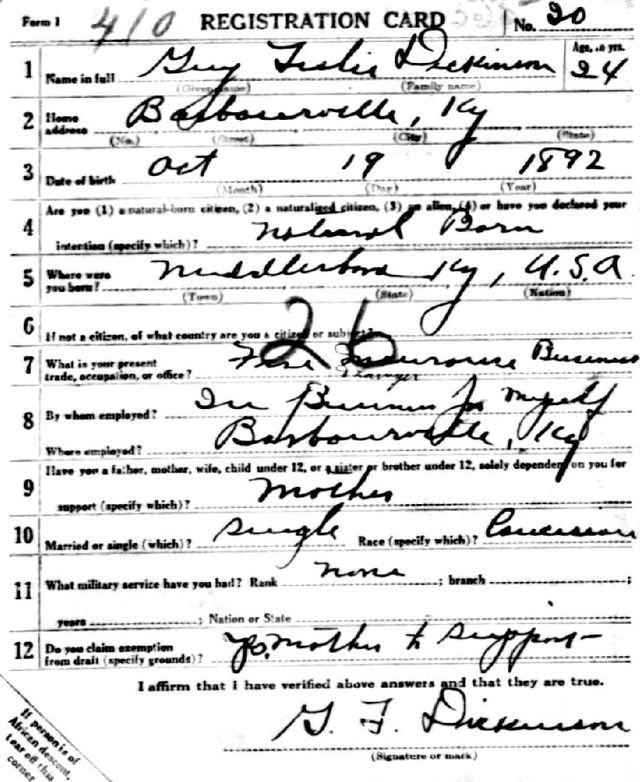 Form 1 410 REGISTRATION CARD No. 20
1 Name in full Guy Leslie Dickinson Age, in yrs. 24
(Given name) (Family name)
2 Home address Barbourville, Ky
(No.) (Street) (City) (State)
3 Date of birth Oct 19 1892
(Month) (Day) (Year)
4 Are you (1) a natural-born citizen, (2) a naturalized citizen, (3) an alien, (4) or have you declared your
intention (specify which)? Natural Born
5 Where were you born? Middlesboro Ky, U.S.A.
(Town) (State) (Nation)
6 If not a citizen, of what country are you a citizen or subject?
26
7 What is your present trade, occupation, or office? Fire Insurance Business
8 By whom employed? In Business for Myself
Where employed? Barbourville, Ky
9 Have you a father, mother, wife, child under 12, or a sister or brother under 12, solely dependent on you for
support (specify which)? Mother
10 Married or single (which)? Single Race (specify which)? Caucasian
11 What military service have you had? Rank none ; branch ;
years ; Nation or State
12 Do you claim exemption from draft (specify grounds)? Yes. Mother to Support
I affirm that I have verified above answers and that they are true.
G. L. Dickinson
(Signature or mark)
If person is of
African descent,
tear off this
corner